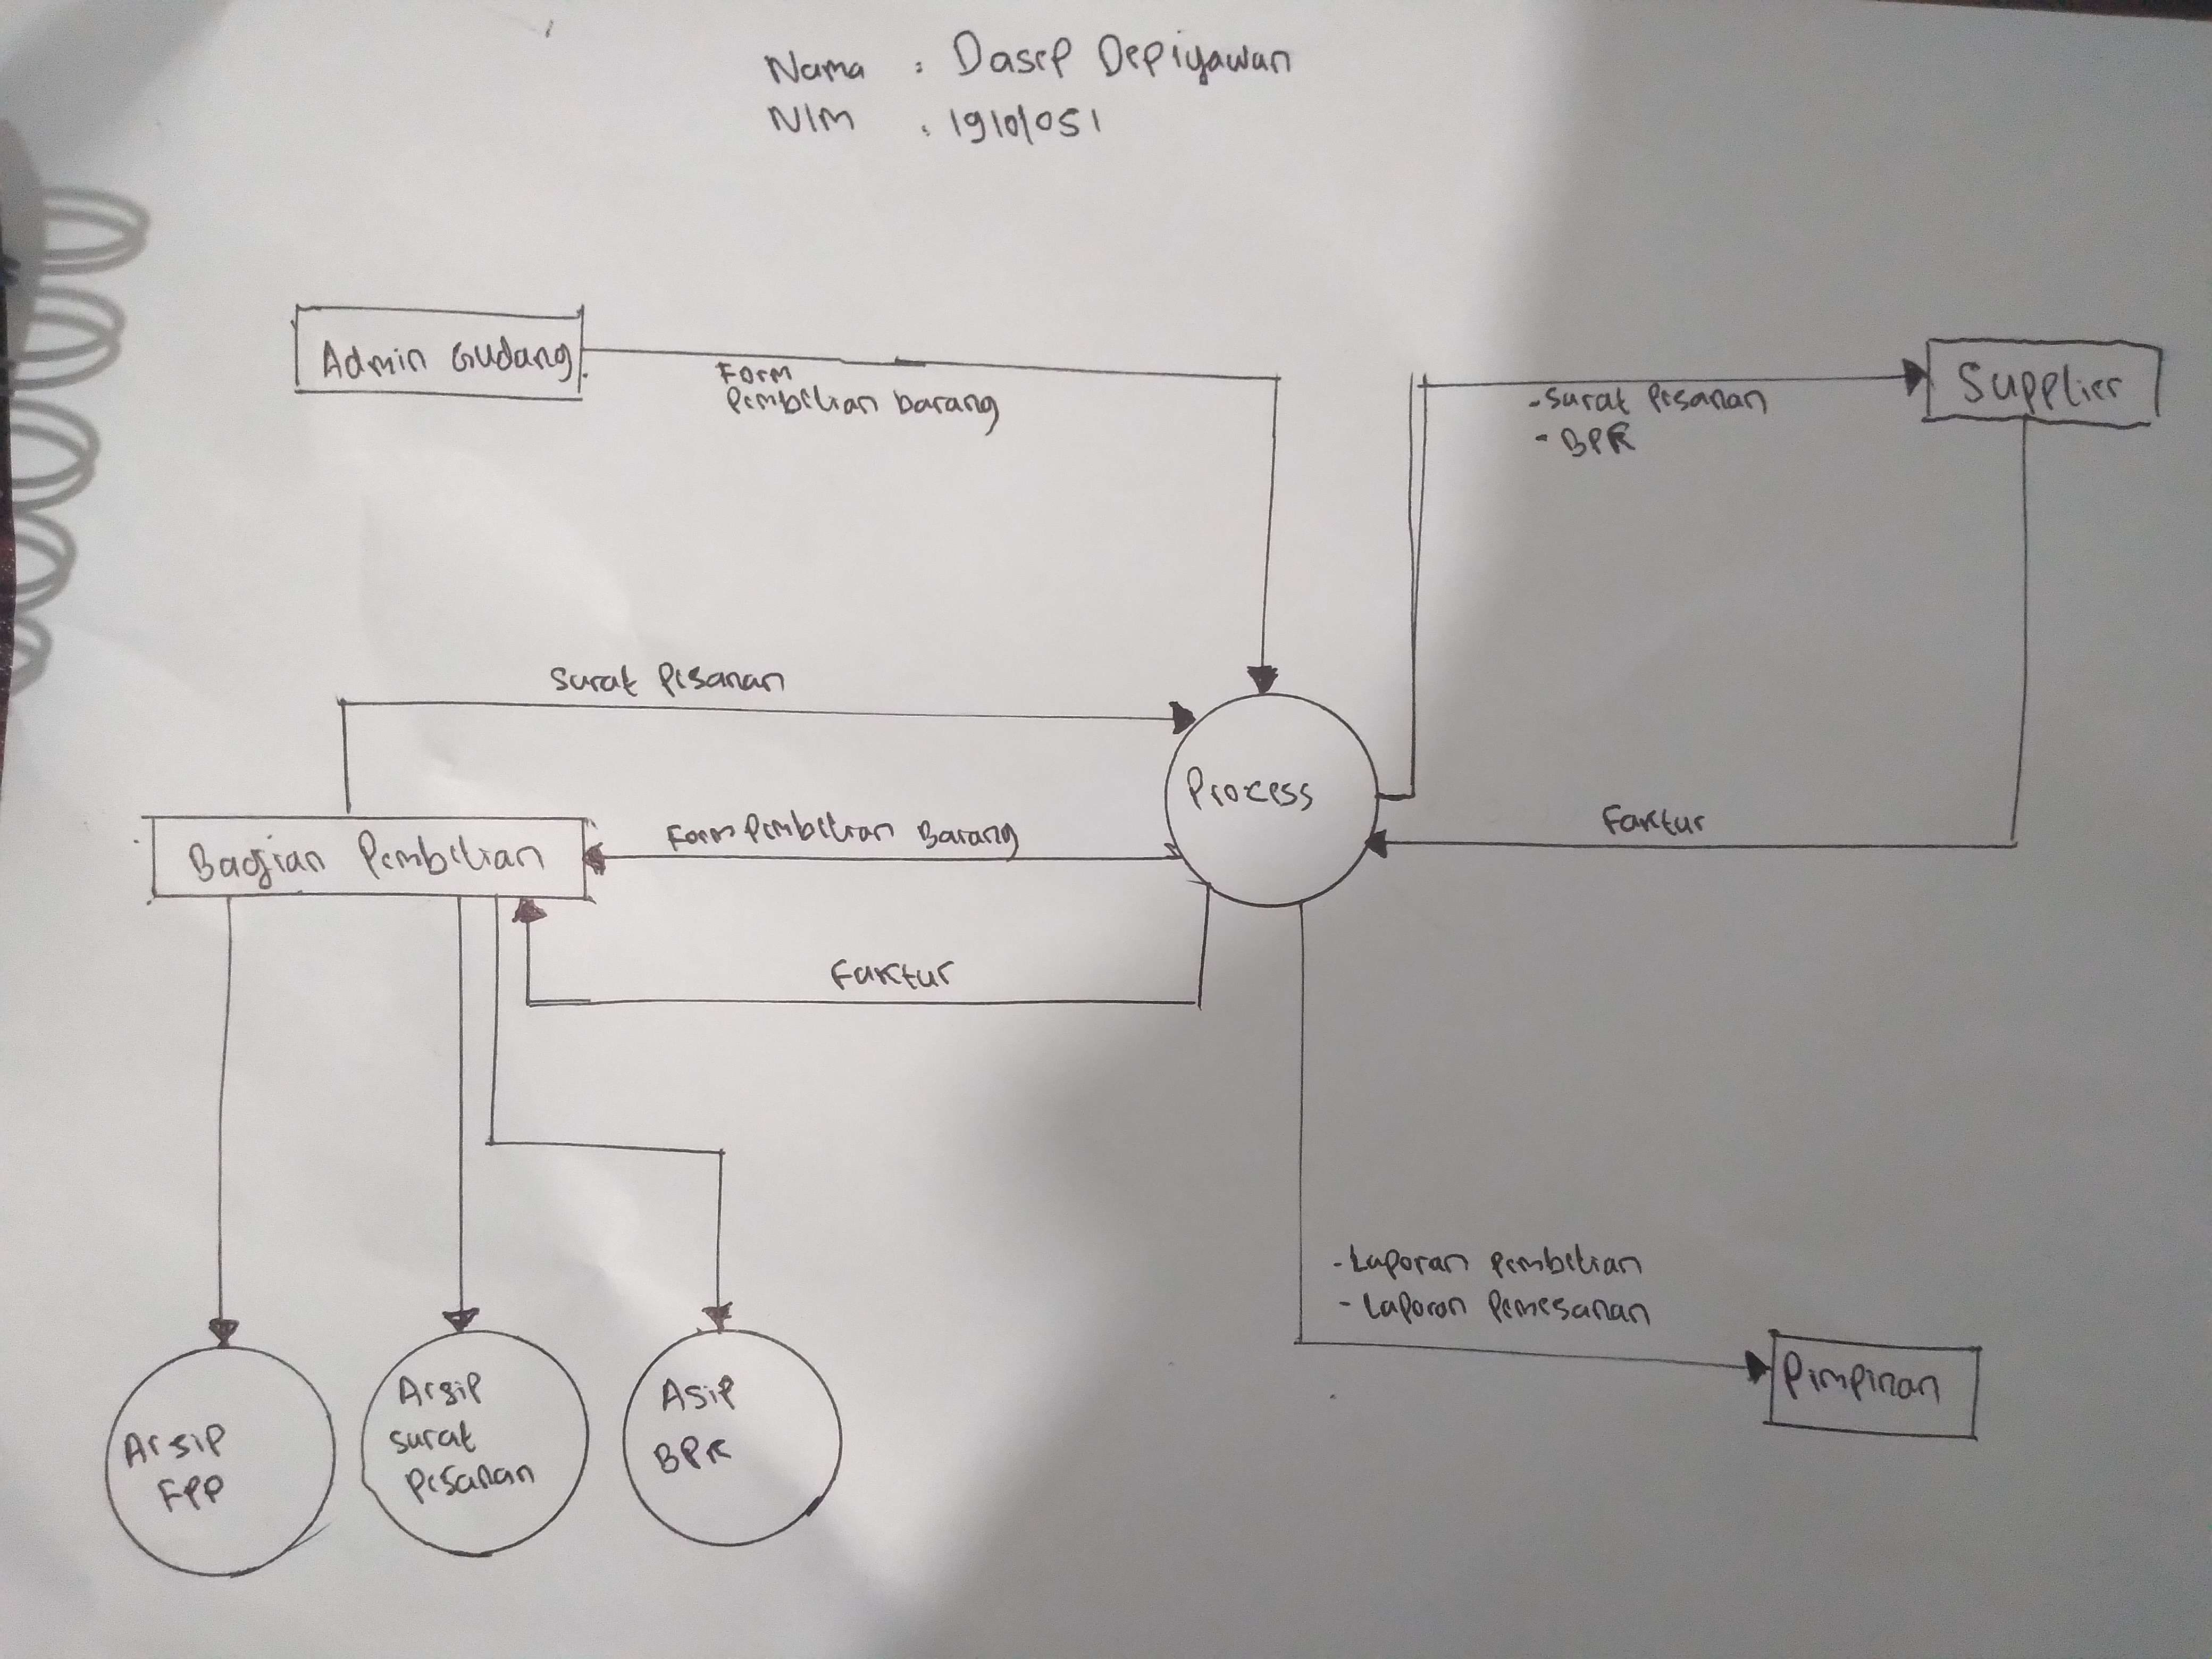 Nama : Dasep Depiyawan
NIM : 19101051
Admin Gudang
Form
Pembelian barang
- Surat Pesanan
- BPK
Supplier
Surat Pesanan
Process
Form Pembelian Barang
Faktur
Bagian Pembelian
Faktur
- Laporan Pembelian
- Laporan Pemesanan
Pimpinan
Arsip
FPP
Arsip
surat
Pesanan
Asip
BPK